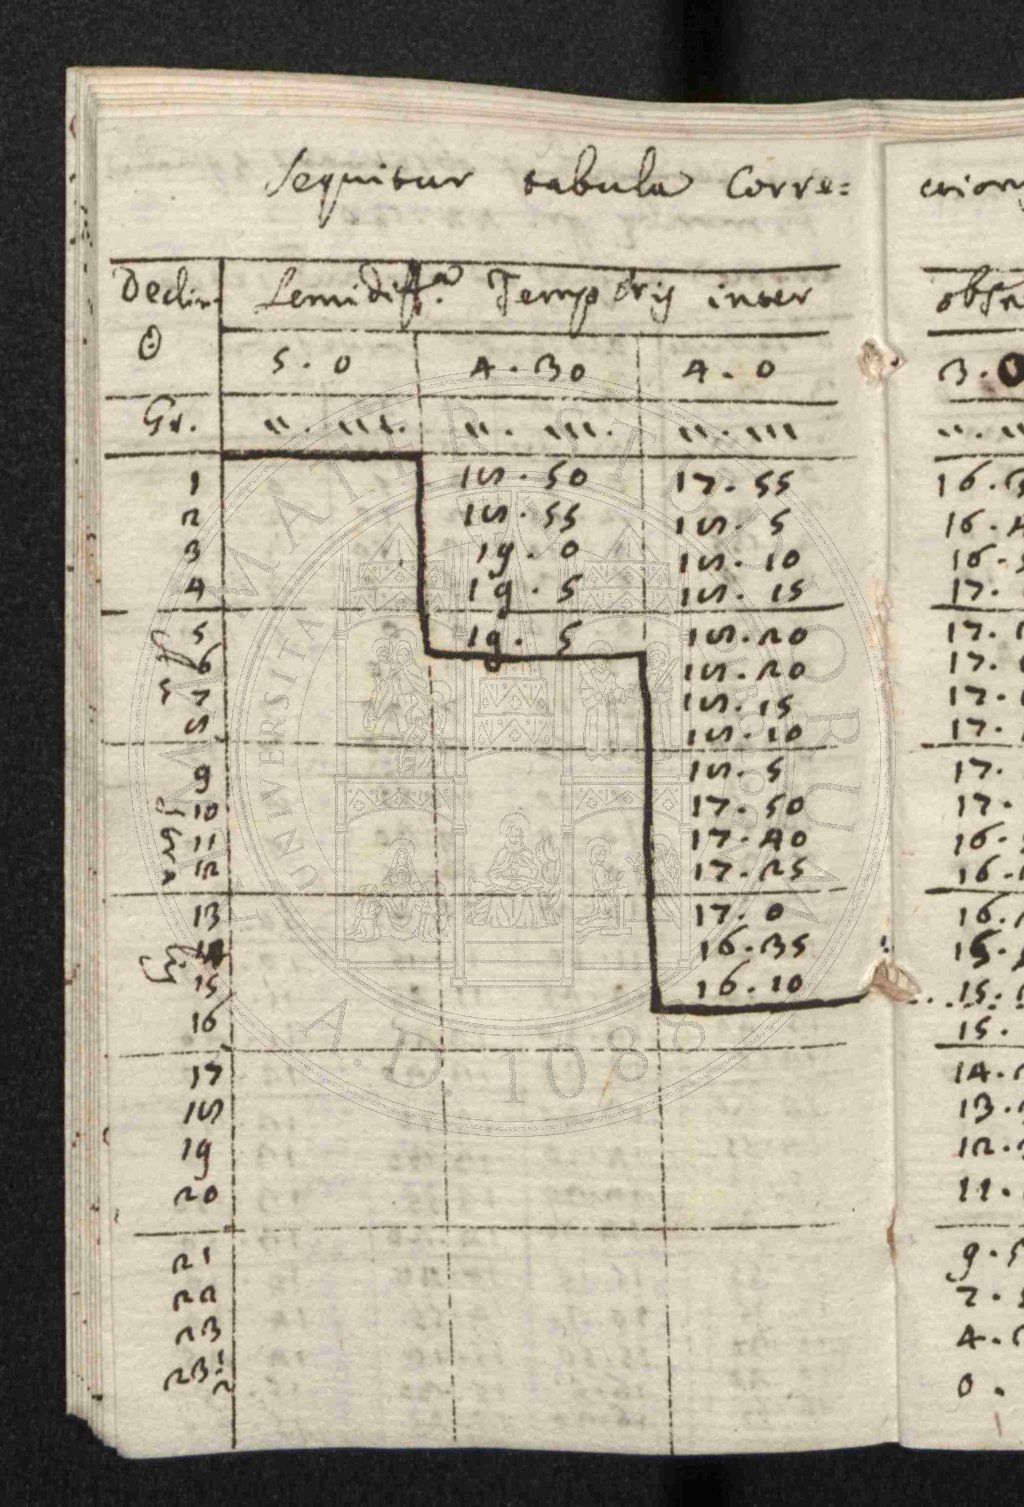 Sequitur tabula Corre=
Declin. Semidiff.a Temporis inter
☉ 5 . 0 4 . 30 4 . 0 3 . 0
Gr. ''. '''. ''. '''. ''. '''
1 18 . 50 17 . 55 16 .
2 18 . 55 18 . 5 16 .
3 19 . 0 18 . 10 16 .
4 19 . 5 18 . 15 17 .
5 19 . 5 18 . 20 17 .
6 18 . 20 17 .
7 18 . 15 17 .
8 18 . 10 17 .
9 18 . 5 17 .
10 17 . 50 17 .
11 17 . 40 16 .
12 17 . 25 16 .
13 17 . 0 16 .
14 16 . 35 15 .
15 16 . 10 15 .
16 15 .
17 14 .
18 13 .
19 12 .
20 11 .
21 9 .
22 7 .
23 4 .
23 1/2 0 .
ALMA MATER STUDIORUM
UNIVERSITA
A.D. 1088